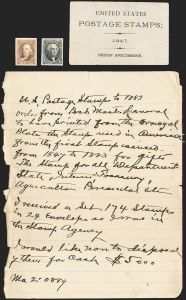 UNITED STATES
POSTAGE STAMPS;
1847.
PROOF SPECIMENS.
U.S. Postage Stamps to 1883
only, from Post Master General
to be printed from the Original
Plate the Stamp used in America
from the first Stamp issued
from 1847 to 1883 for gifts
The Stamp for all Department
State, Justice, Treasury
Agriculture
I received a Set 174 Stamps
in 29 Envelopes as I was in
the Stamp Agency
I would like now to dispose of
them for Cash $5000